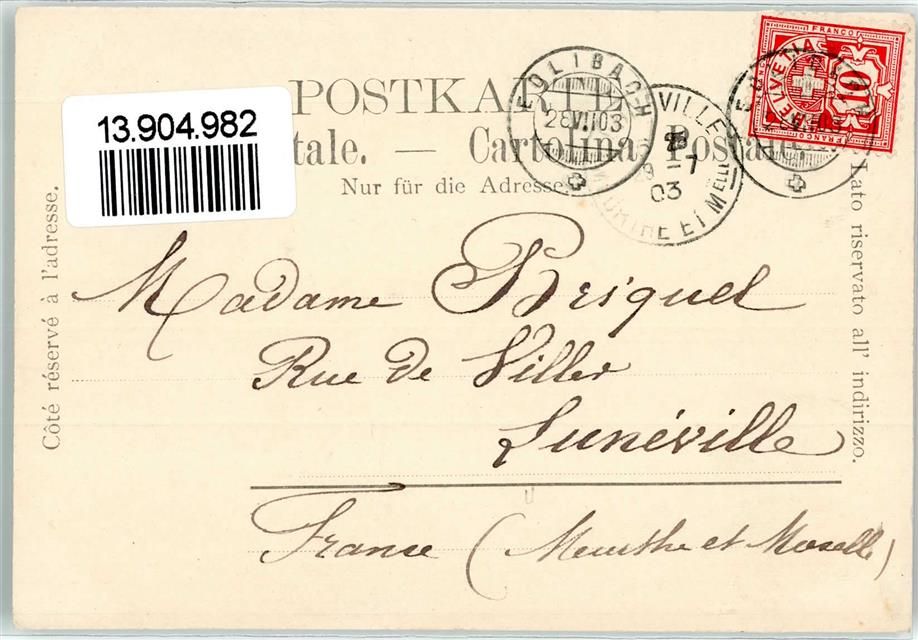 POSTKARTE
13.904.982
tale. — Cartolina Postale
Nur für die Adresse.
Côté réservé à l'adresse.
Lato riservato all' indirizzo.
FRANCO
HELVETIA
10
FRANCO
28.VII03
VILLE
9 - 7
03
MEURTHE ET MELLE
Madame Brisquel
Rue de Viller
Lunéville
France (Meurthe et Moselle)